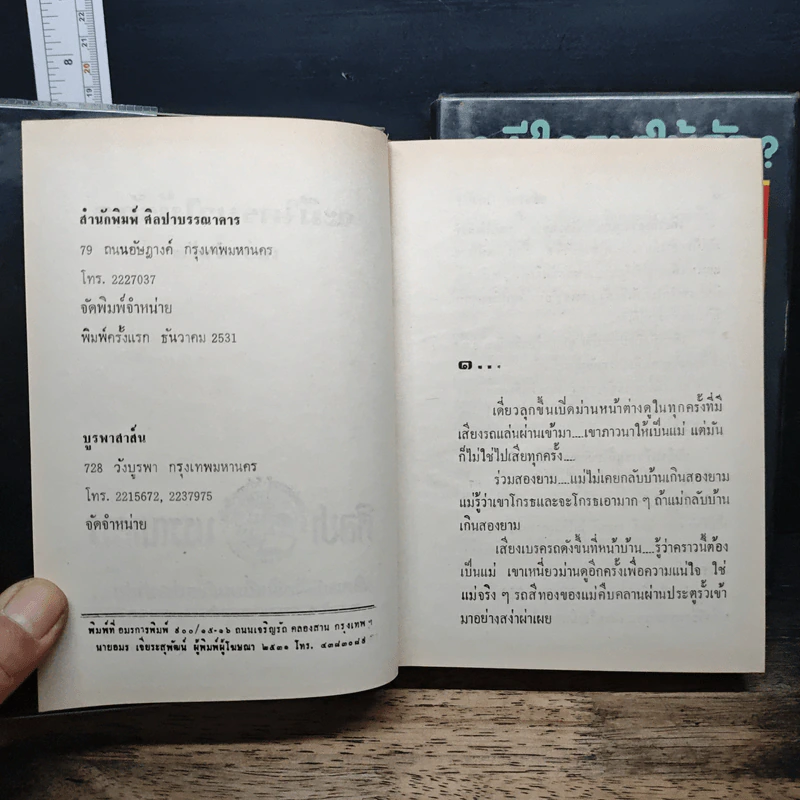 8
22
21
20
19
สำนักพิมพ์ ศิลปาบรรณาคาร
79 ถนนอัษฎางค์ กรุงเทพมหานคร
โทร. 2227037
จัดพิมพ์จำหน่าย
พิมพ์ครั้งแรก ธันวาคม 2531
บูรพาสาส์น
728 วังบูรพา กรุงเทพมหานคร
โทร. 2215672, 2237975
จัดจำหน่าย
พิมพ์ที่ อมรการพิมพ์ ๙๐๐/๑๕-๑๖ ถนนเจริญรัถ คลองสาน กรุงเทพ ฯ
นายอมร เจียระสุพัฒน์ ผู้พิมพ์ผู้โฆษณา ๒๕๓๑ โทร. ๔๓๘๓๐๘๕
๑...
เดี่ยวลุกขึ้นเปิดม่านหน้าต่างดูในทุกครั้งที่มี
เสียงรถแล่นผ่านเข้ามา....เขาภาวนาให้เป็นแม่ แต่มัน
ก็ไม่ใช่ไปเสียทุกครั้ง....
ร่วมสองยาม....แม่ไม่เคยกลับบ้านเกินสองยาม
แม่รู้ว่าเขาโกรธและจะโกรธเอามาก ๆ ถ้าแม่กลับบ้าน
เกินสองยาม
เสียงเบรครถดังขึ้นที่หน้าบ้าน....รู้ว่าคราวนี้ต้อง
เป็นแม่ เขาเหนี่ยวม่านดูอีกครั้งเพื่อความแน่ใจ ใช่
แม่จริง ๆ รถสีทองของแม่คืบคลานผ่านประตูรั้วเข้า
มาอย่างสง่าผ่าเผย